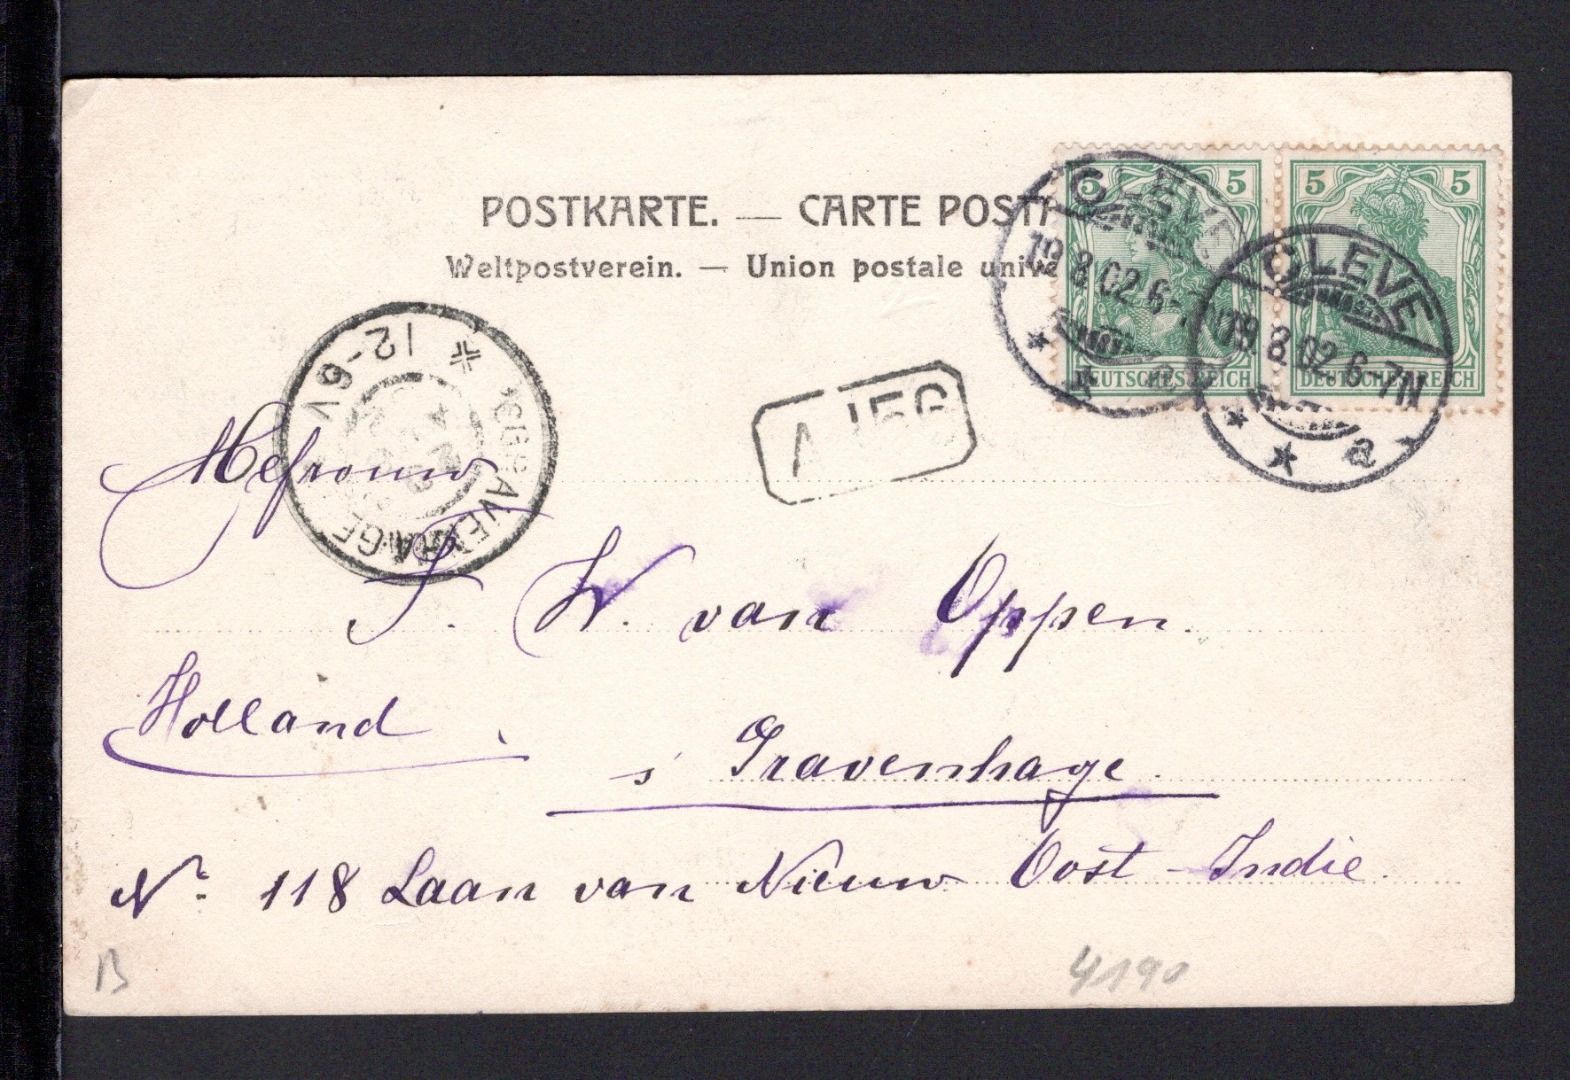 POSTKARTE. — CARTE POST
Weltpostverein. — Union postale unive
5 5 5 5
DEUTSCHES REICH DEUTSCHES REICH
CLEVE
19.8.02.6-7
a
CLEVE
19.8.02.6-7N
a
12-6V
'SGRAVENHAGE
Mefrouw
F. W. van Oppen.
Holland.
s' Gravenhage.
No. 118 Laan van Nieuw Oost-Indie.
B
4190